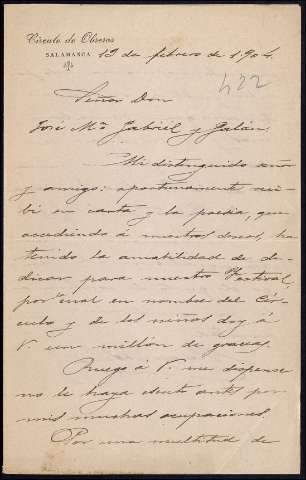 Círculo de Obreros
SALAMANCA
12 de febrero de 1904.
422
Señor Don
José Mª Gabriel y Galán.
Mi distinguido señor
y amigo: oportunamente reci-
bí su carta y la poesía, que
accediendo á nuestros deseos, ha
tenido la amabilidad de de-
dicar para nuestro Festival,
por lo cual en nombre del Cír-
culo y de los niños doy á
V. un millón de gracias.
Ruego á V. me dispense
no le haya escrito antes por
mis muchas ocupaciones.
Por una multitud de